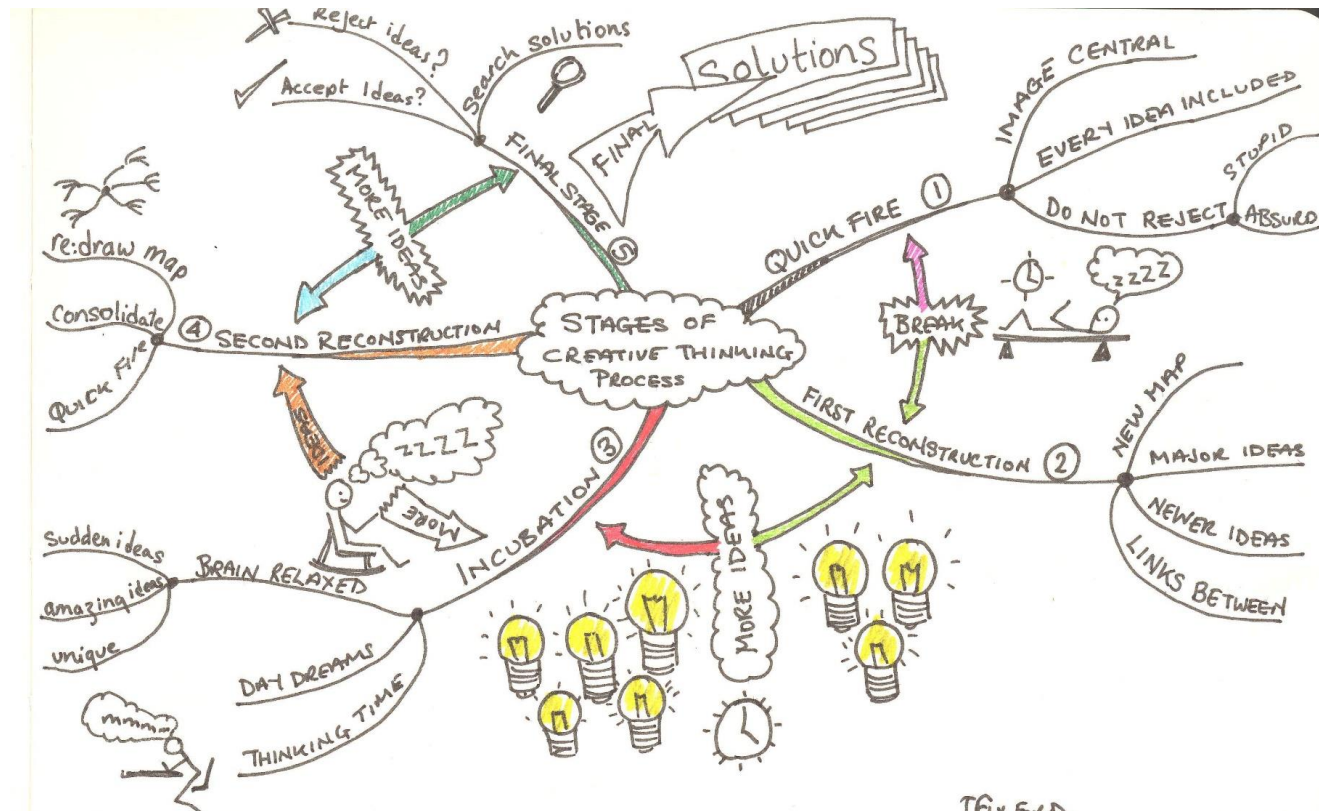 STAGES OF
CREATIVE THINKING
PROCESS
QUICK FIRE 1
IMAGE CENTRAL
EVERY IDEA INCLUDED
DO NOT REJECT
STUPID
ABSURD
BREAK
ZZZZ
FIRST RECONSTRUCTION 2
NEW MAP
MAJOR IDEAS
NEWER IDEAS
LINKS BETWEEN
MORE IDEAS
INCUBATION 3
BRAIN RELAXED
Sudden ideas
amazing ideas
unique
DAY DREAMS
THINKING TIME
mmmm
MORE
IDEAS
ZZZZ
4 SECOND RECONSTRUCTION
re:draw map
Consolidate
QUICK FIRE
MORE IDEAS
FINAL STAGE 5
Reject ideas?
Accept Ideas?
Search solutions
FINAL
Solutions